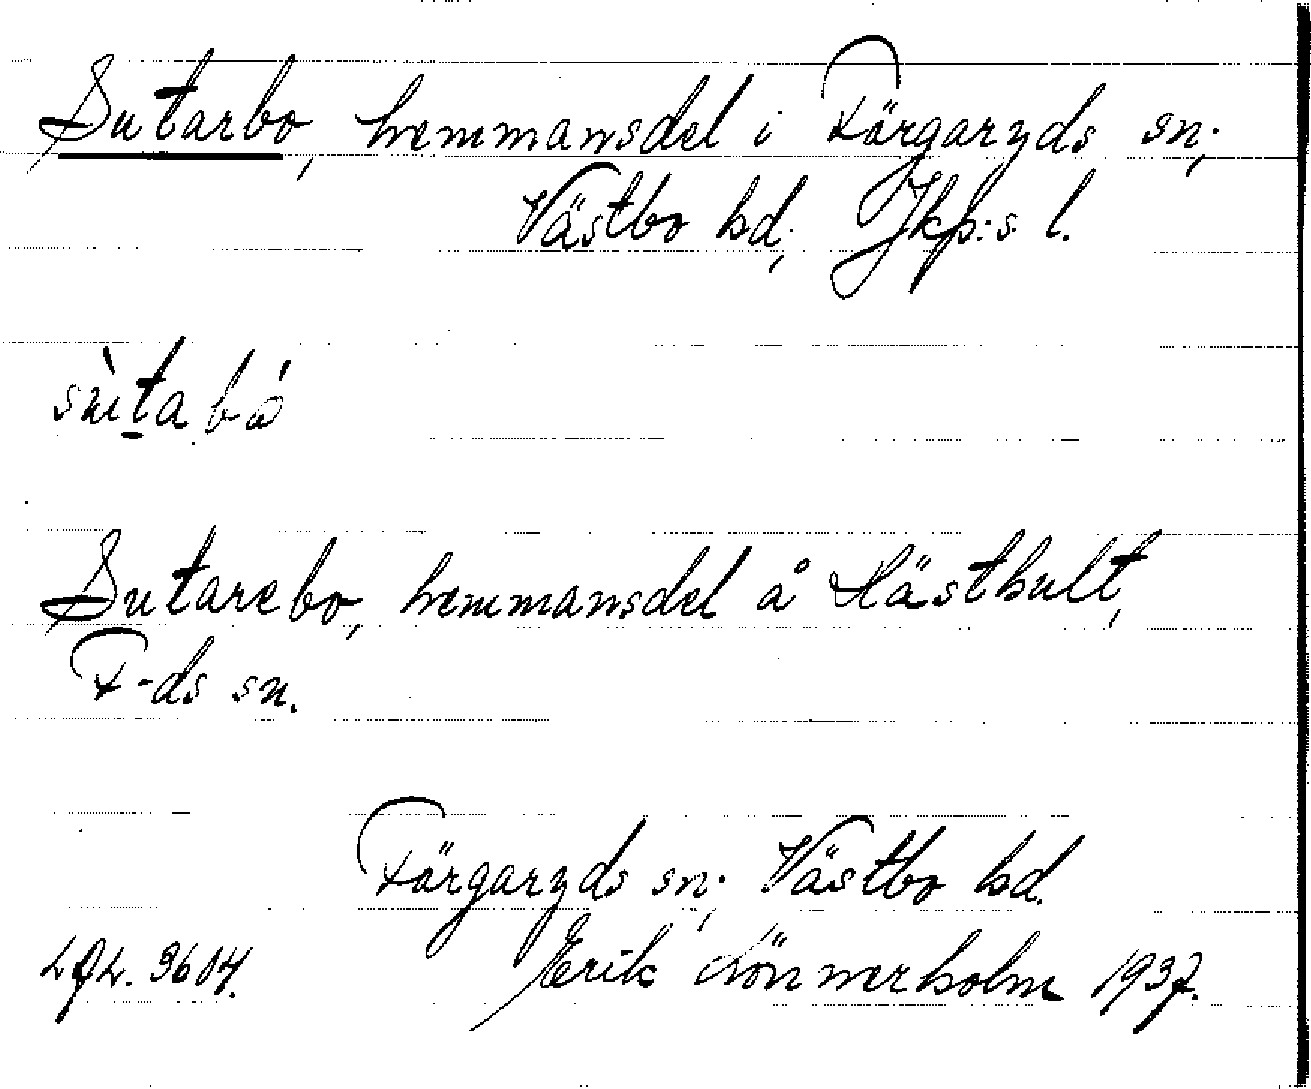 Sutarbo, hemmansdel i Färgaryds sn;
Västbo hd; Jkp:s l.
sùta bó
Sutarebo, hemmansdel å Hästhult,
F-ds sn.
Färgaryds sn; Västbo hd.
3604. Erik Lönnerholm 1937.